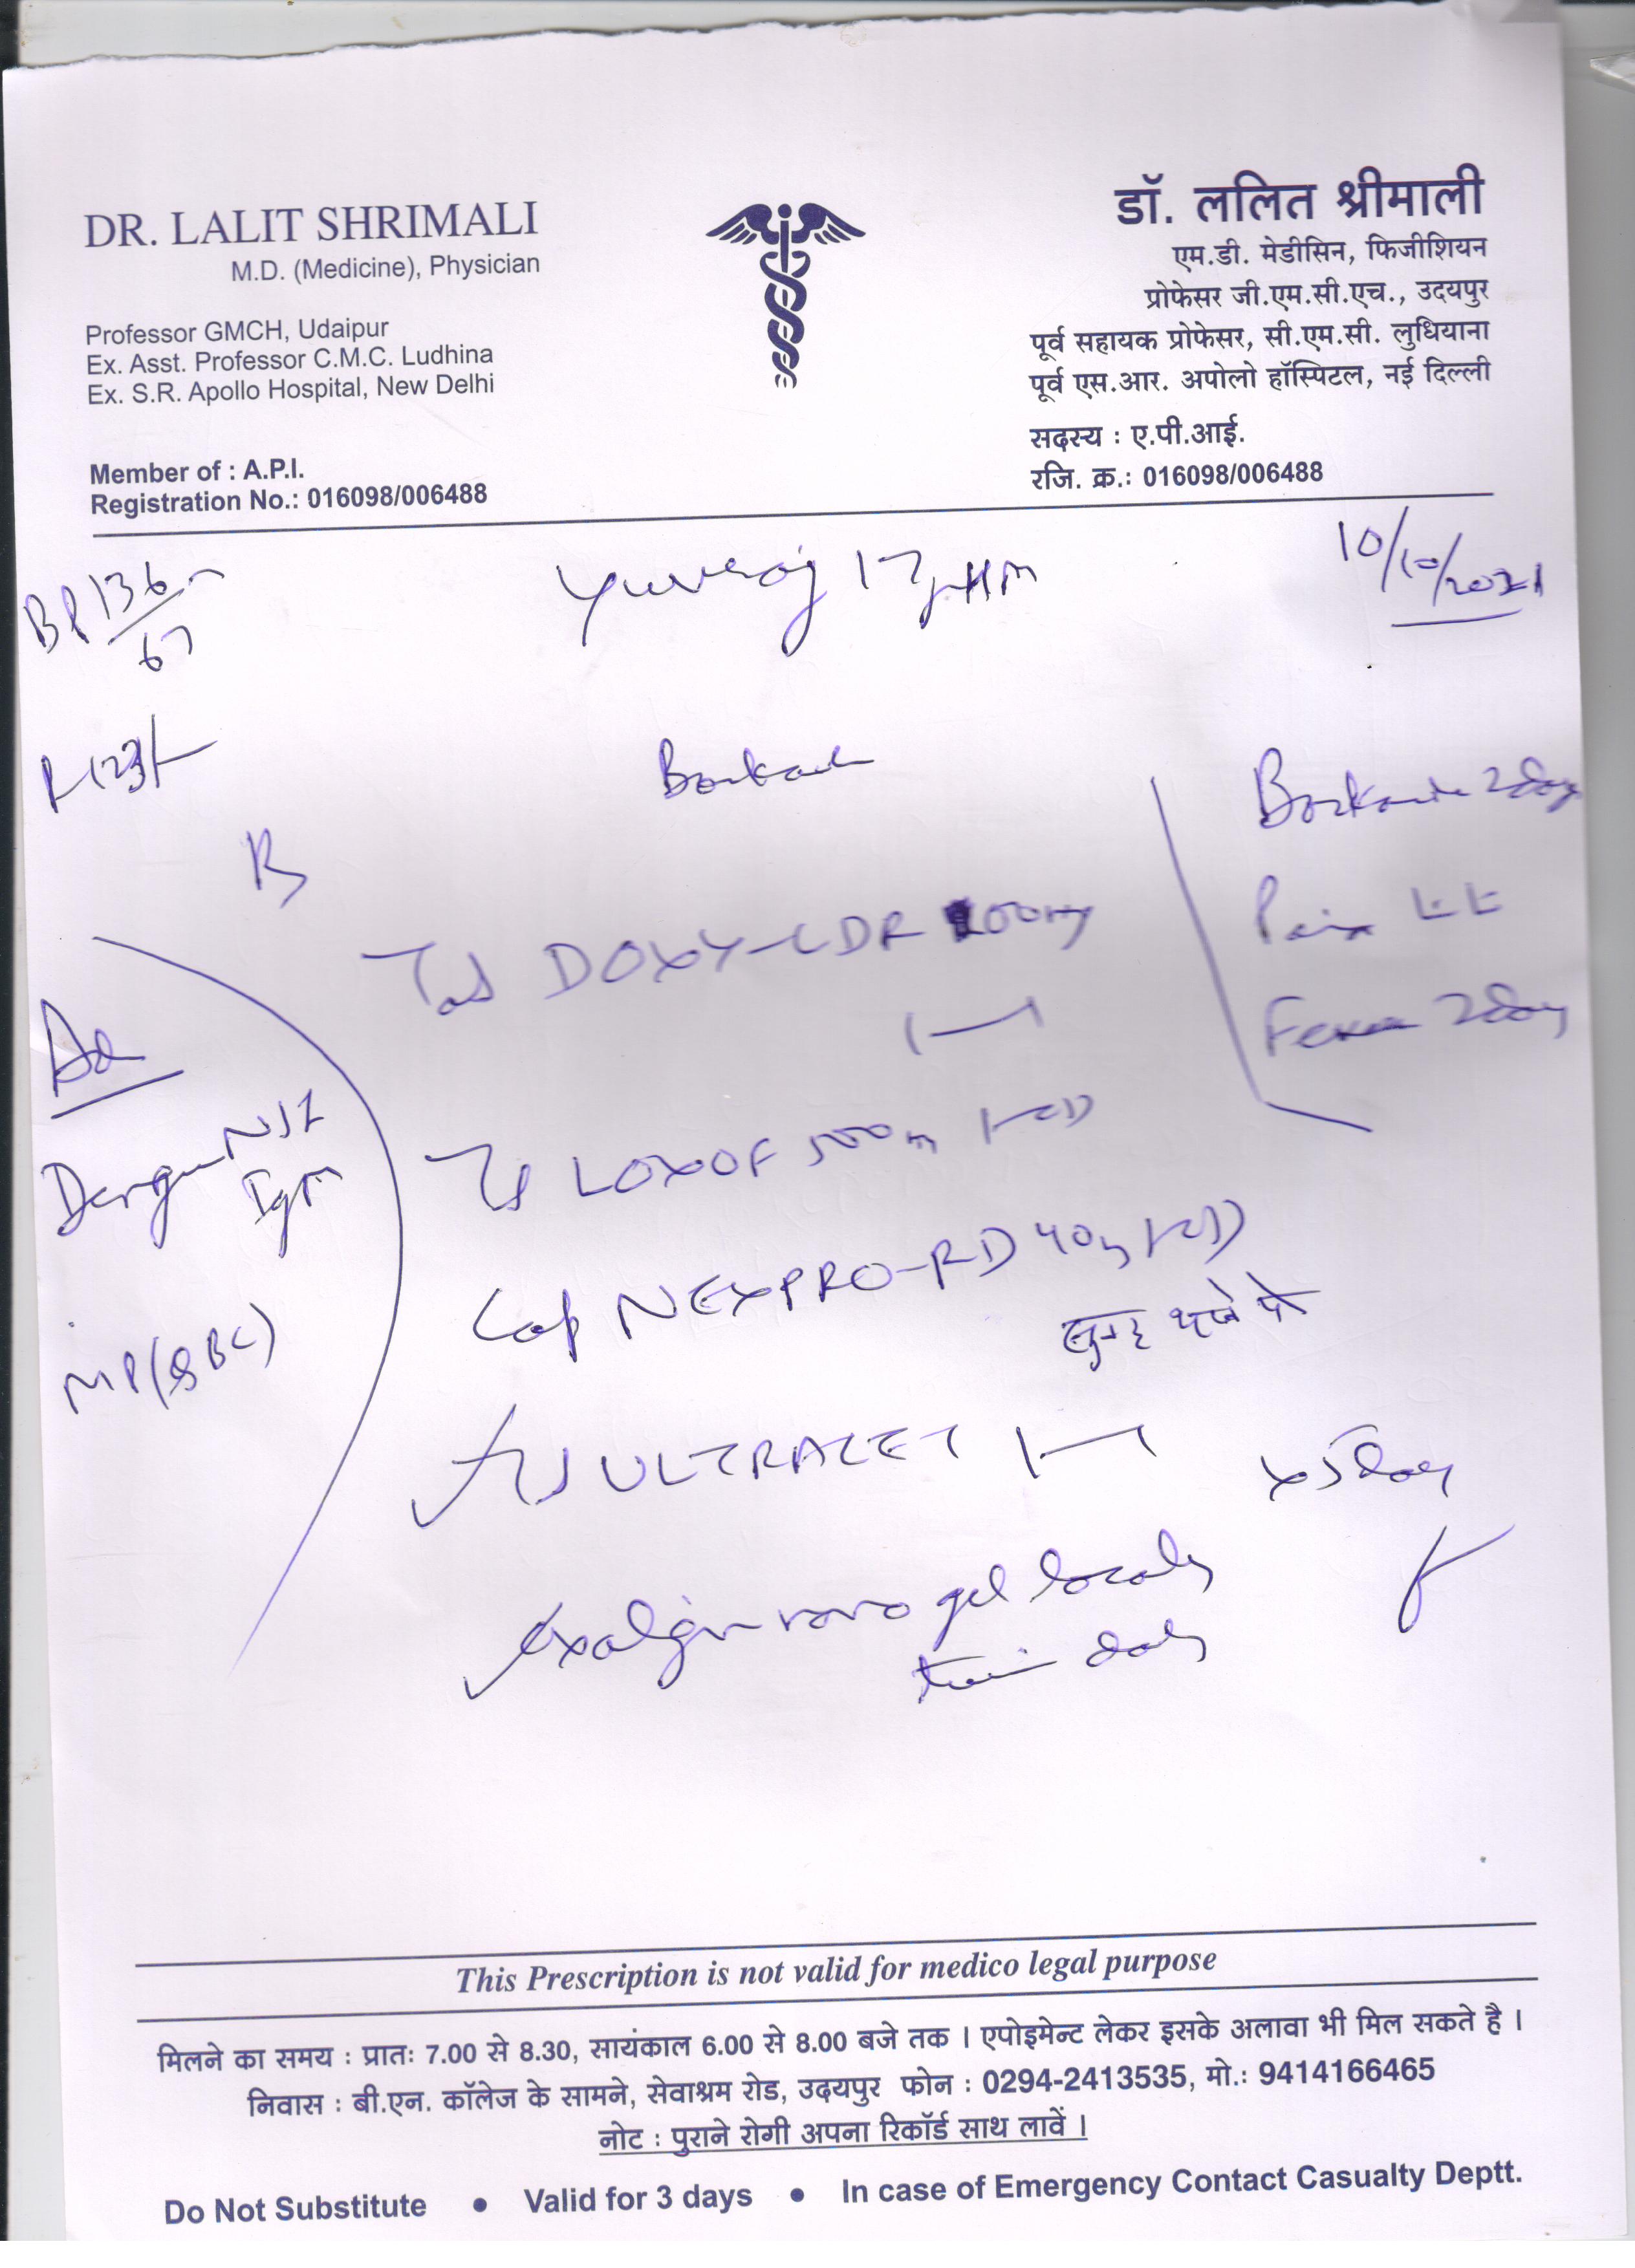 DR. LALIT SHRIMALI
M.D. (Medicine), Physician
Professor GMCH, Udaipur
Ex. Asst. Professor C.M.C. Ludhina
Ex. S.R. Apollo Hospital, New Delhi
Member of : A.P.I.
Registration No.: 016098/006488
डॉ. ललित श्रीमाली
एम.डी. मेडीसिन, फिजीशियन
प्रोफेसर जी.एम.सी.एच., उदयपुर
पूर्व सहायक प्रोफेसर, सी.एम.सी. लुधियाना
पूर्व एस.आर. अपोलो हॉस्पिटल, नई दिल्ली
सदस्य : ए.पी.आई.
रजि. क्र.: 016098/006488
BP 136/67
Yuvraj 17
10/10/2021
Backache
Backache 2 day
Pain
Fever 2 day
Tab DOXY-LDR 100mg
Adv
Dengue NS1
IgM
Tab LOXOF 500m 1-OD
Cap NEXPRO-RD 40mg 1-OD
MP(QBC)
Tab ULTRACET 1-1
x 5 day
gel locally
daily
This Prescription is not valid for medico legal purpose
मिलने का समय : प्रातः 7.00 से 8.30, सायंकाल 6.00 से 8.00 बजे तक । एपोइमेन्ट लेकर इसके अलावा भी मिल सकते है ।
निवास : बी.एन. कॉलेज के सामने, सेवाश्रम रोड, उदयपुर फोन : 0294-2413535, मो.: 9414166465
नोट : पुराने रोगी अपना रिकॉर्ड साथ लावें ।
Do Not Substitute • Valid for 3 days • In case of Emergency Contact Casualty Deptt.